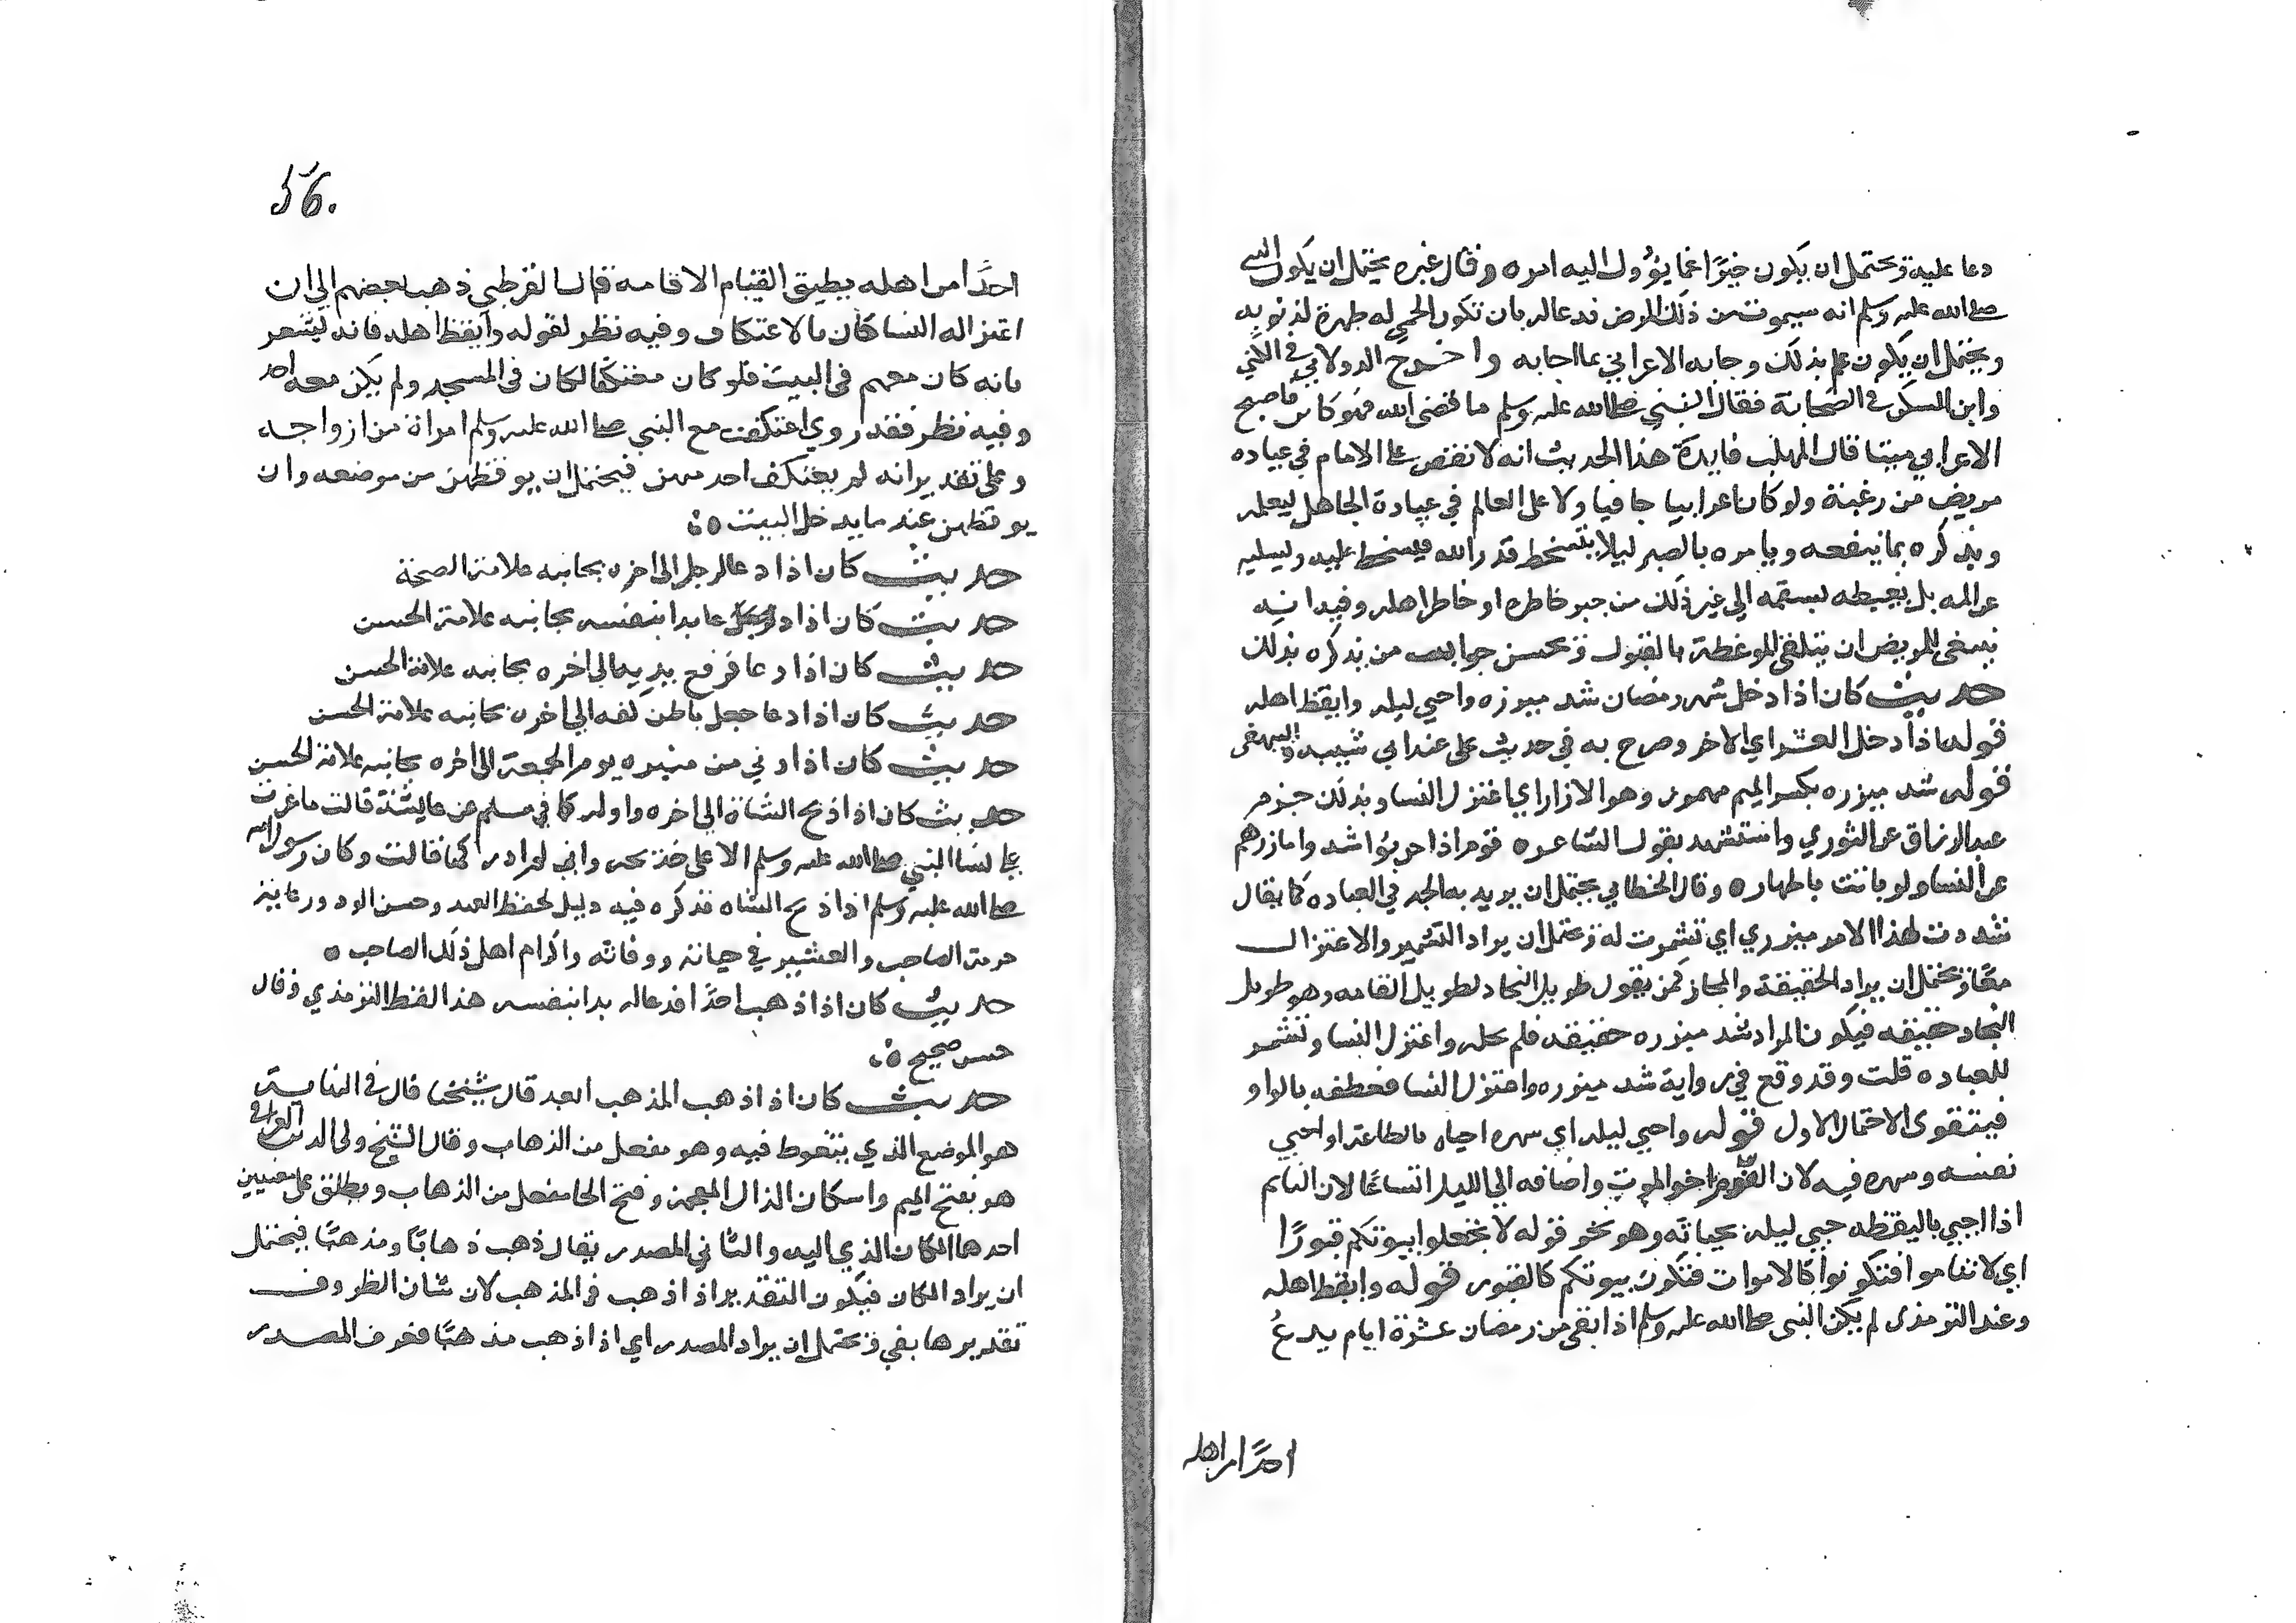 دعا عليه ويحتمل ان يكون خبرًا عما يؤول اليه امره وقال غيره يحتمل ان يكون النبي
صلى الله عليه وسلم انه سيموت من ذلك المرض فدعا له بان تكون الحمى له طهرة لذنوبه
ويحتمل ان يكون علم بذلك وجابه الاعرابي بما اجابه واخرج الدولابي في الكني
وابن السكن في الصحابة فقال النبي صلى الله عليه وسلم ما قضى الله فهو كائن فاصبح
الاعرابي ميتا قال المهلب فايدة هذا الحديث انه لا نقص على الامام في عياده
مريض من رعيته ولو كان اعرابيا جافيا ولا على العالم في عيادة الجاهل ليعلمه
ويذكره بما ينفعه ويامره بالصبر ليلا يتسخط قدر الله فيسخط عليه ويسليه
عن المه بل يغبطه بسقمه الي غير ذلك من جبر خاطره او خاطر اهله وفيه انه
ينبغي للمريض ان يتلقى الموعظة بالقبول ويحسن جواب من يذكره بذلك
حديث كان اذا دخل شهر رمضان شد ميزره واحيي ليله وايقظ اهله
قوله اذا دخل العشر اي الاخر وصرح به في حديث علي عند ابي شيبه والبيهقي
قوله شد ميزره بكسر الميم مهموز وهو الازار اي اعتزل النسا وبذلك جزم
عبد الرزاق عن الثوري واستشهد بقول الشاعره قوم اذا حاربوا شدوا مازرهم
عن النسا ولو باتت باطهاره وقال الخطابي يحتمل ان يريد به الجد في العباده كما يقال
شددت لهذا الامر ميزري اي تشمرت له ويحتمل ان يراد التشمير والاعتزال
معًا ويحتمل ان يراد الحقيقة والمجاز كمن يقول طويل النجاد لطويل القامه وهو طويل
النجاد حقيقه فيكون المراد شد ميزره حقيقه فلم يحله واعتزل النسا وتشمر
للعباده قلت وقد وقع في رواية شد ميزره واعتزل النسا فعطفه بالواو
فيتقوى الاحتمال الاول قوله واحيي ليله اي سهره احياه بالطاعة او احيي
نفسه وسهره فيه لان النوم اخو الموت واضافه الي الليل اتساعًا لان النايم
اذا احيي باليقظه حيي ليله بحياته وهو نحو قوله لا تجعلوا بيوتكم قبورًا
اي لا تناموا فتكونوا كالاموات فتكون بيوتكم كالقبور قوله وايقظ اهله
وعند الترمذي لم يكن النبي صلى الله عليه وسلم اذا بقي من رمضان عشرة ايام يدعُ
احدًا من اهله
56.
احدًا من اهله يطيق القيام الا اقامه قال القرطبي ذهب بعضهم الي ان
اعتزاله النسا كان بالاعتكاف وفيه نظر لقوله وايقظ اهله فانه يشعر
بانه كان معهم في البيت فلو كان معتكفا لكان في المسجد ولم يكن معه احد
وفيه نظر فقد روي اعتكفت مع النبي صلى الله عليه وسلم امراة من ازواجه
وعلى تقدير انه لم يعتكف احد منهن فيحتمل ان يوقظهن من موضعه وان
يوقظهن عند ما يدخل البيت
حديث كان اذا دعا لرجل الى اخره بجانبه علامة الصحة
حديث كان اذا دعا بدا بنفسه بجانبه علامة الحسن
حديث كان اذا دعا فرفع يديه الي اخره بجانبه علامة الحسن
حديث كان اذا دعا جعل باطن كفه الي اخره بجانبه علامة الحسن
حديث كان اذا دني من منبره يوم الجمعة الى اخره بجانبه علامة الحسن
حديث كان اذا ذبح الشاة الي اخره واوله كما في مسلم عن عايشة قالت ما غرت
على نسا النبي صلى الله عليه وسلم الا على خديجه واني لم ادركها قالت وكان رسول الله
صلى الله عليه وسلم اذا ذبح الشاه فذكره فيه دليل لحفظ العهد وحسن الود ورعاية
حرمة الصاحب والعشير في حياته ووفاته واكرام اهل ذلك الصاحب
حديث كان اذا ذهب احدًا فدعا له بدا بنفسه هذا لفظ الترمذي وقال
حسن صحيح
حديث كان اذا ذهب المذهب ابعد قال شيخنا قال في النهايه
هو الموضع الذي يتغوط فيه وهو مفعل من الذهاب وقال الشيخ ولي الدين العراقي
هو بفتح الميم واسكان الذال المعجمة وفتح الها مفعل من الذهاب ويطلق على معنيين
احدها المكان الذي اليه والثاني المصدر يقال ذهب ذهابًا ومذهبًا فيحتمل
ان يراد المكان فيكون التقدير اذا ذهب في المذهب لان شان الظروف
تقديرها بفي ويحتمل ان يراد المصدر اي اذا ذهب مذهبًا فعرف المصدر